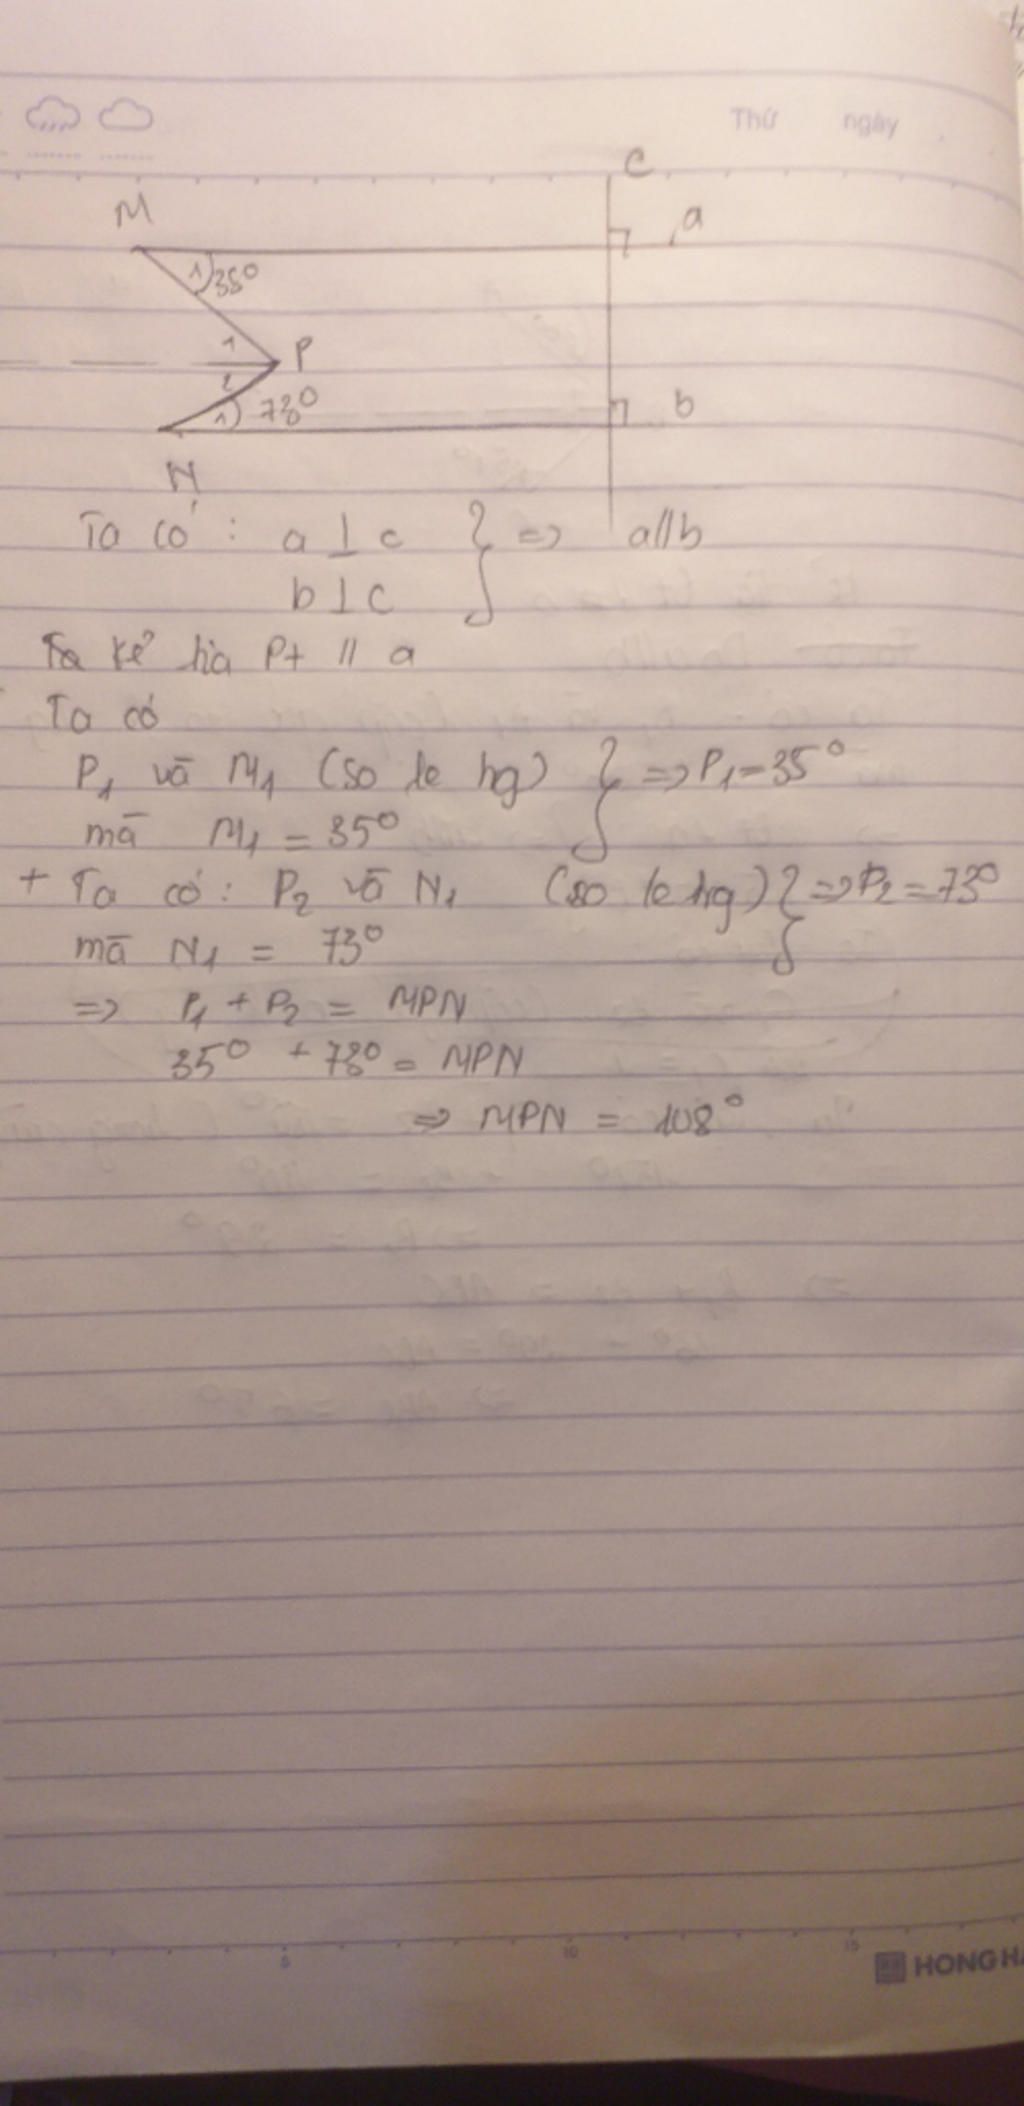 Thứ ngày
C
M
a
1 35°
1
P
2
1 73°
b
N
Ta có : a ⊥ c } => a // b
b ⊥ c
Ta kẻ tia Pt // a
Ta có
P₁ và M₁ (so le trg) } => P₁ = 35°
mà M₁ = 35°
+ Ta có : P₂ và N₁ (so le trg) } => P₂ = 73°
mà N₁ = 73°
=> P₁ + P₂ = MPN
35° + 73° = MPN
=> MPN = 108°
5 10 15
HONG HA